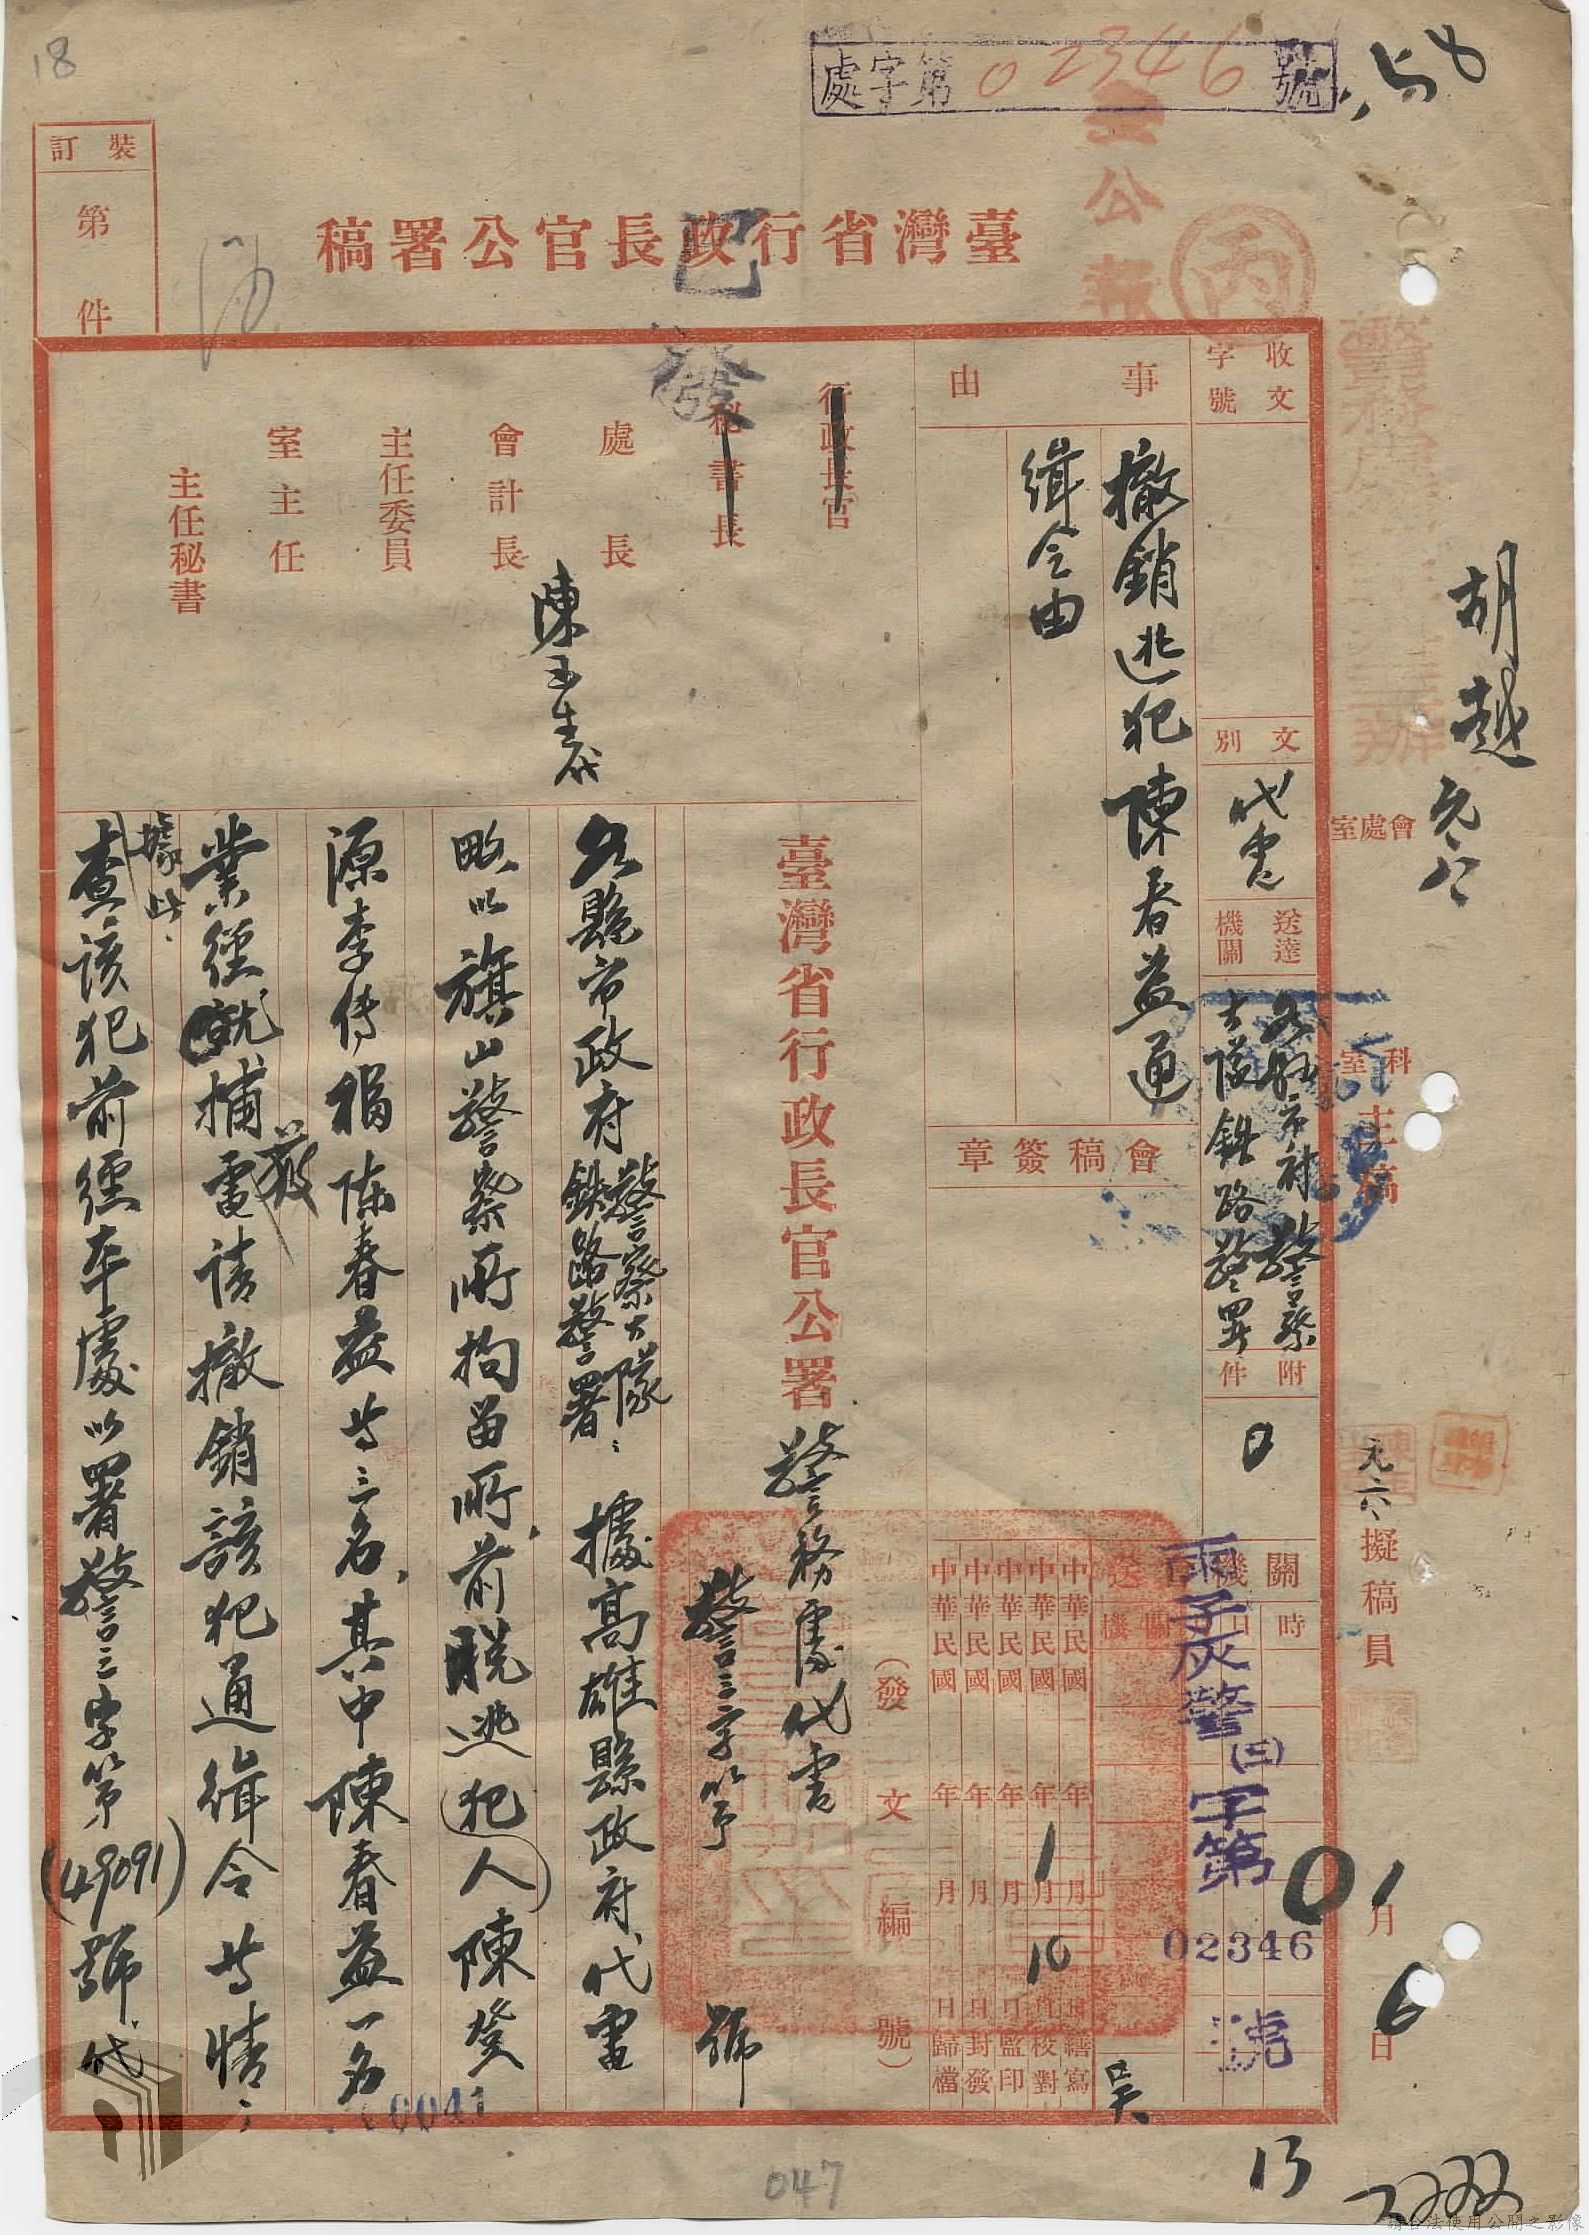 18
處字第02346號
裝訂
第 件
臺灣省行政長官公署稿
登公報
丙
已發
收文
字號
文別
代電
送達機關
各縣市府警察大隊鐵路警署
附件
0
事由
撤銷逃犯陳春益通
緝令由
會稿簽章
行政長官
秘書長
處長
陳玉生代
會計長
主任委員
室主任
主任秘書
胡越
會處室
科室主稿
元六
擬稿員
1月6日
雨子灰警(三)字第02346號
中華民國 年 月 日繕寫
中華民國 年1月10日校對
中華民國 年 月 日監印
中華民國 年 月 日封發
中華民國 年 月 日歸檔
吳
(發文編號)
臺灣省行政長官公署警務處代電
警三字第 號
各縣市政府警察大隊鐵路警署:據高雄縣政府代電
略以旗山警察所拘留所,前脫逃(犯人)陳登
源李傳福陳春益等三名,其中陳春益一名
業經就捕獲電請撤銷該犯通緝令等情:
據此,
查該犯前經本處以署警三字第(49091)號代
0041
047
13
請合法使用公開之影像